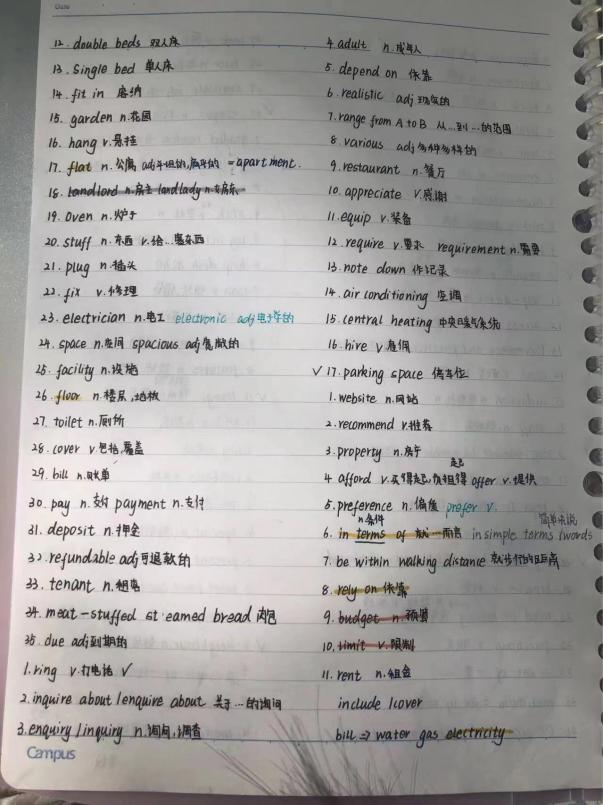 Date
12. double beds 双人床
13. Single bed 单人床
14. fit in 容纳
15. garden n.花园
16. hang v.悬挂
17. flat n.公寓 adj平坦的,扁平的 =apartment.
18. landlord n.房主 landlady n.女房东
19. Oven n.炉子
20. stuff n.东西 v.给…塞东西
21. plug n.插头
22. fix v.修理
23. electrician n.电工 electronic adj电子的
24. space n.空间 spacious adj宽敞的
25. facility n.设施
26. floor n.楼层,地板
27. toilet n.厕所
28. cover v.包括,覆盖
29. bill n.账单
30. pay n.支付 payment n.支付
31. deposit n.押金
32. refundable adj可退款的
33. tenant n.租户
34. meat-stuffed steamed bread 肉包
35. due adj到期的
1. ring v.打电话 ✓
2. inquire about/enquire about 关于…的询问
3. enquiry/inquiry n.询问,调查
Campus
4. adult n.成年人
5. depend on 依靠
6. realistic adj现实的
7. range from A to B 从…到…的范围
8. various adj多种多样的
9. restaurant n.餐厅
10. appreciate v.感谢
11. equip v.装备
12. require v.要求 requirement n.需要
13. note down 作记录
14. air conditioning 空调
15. central heating 中央暖气系统
16. hire v.雇佣
✓ 17. parking space 停车位
1. website n.网站
2. recommend v.推荐
3. property n.房子
4 afford v.买得起,负担得起 offer v.提供
5. preference n.偏爱 prefer v.
n.条件 简单来说
6. in terms of 就…而言 in simple terms/words
7. be within walking distance 就步行的距离
8. rely on 依靠
9. budget n.预算
10. limit v.限制
11. rent n.租金
include/cover
bill ⇒ water gas electricity